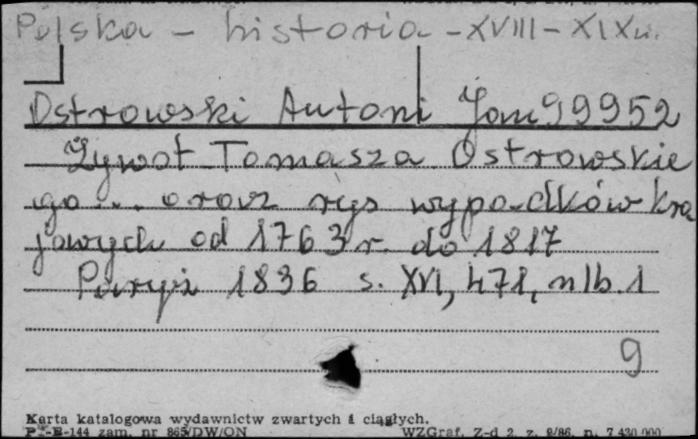 Polska - historia - XVIII - XIX w.
Ostrowski Antoni Jan 99952
Żywot Tomasza Ostrowskie
go ... oraz rys wypadków kra
jowych od 1763 r. do 1817
Paryż 1836 s. XVI, 471, nlb. 1
9
Karta katalogowa wydawnictw zwartych i ciągłych.
P-E-144 zam. nr 865/DW/ON WZGraf. Z-d 2 z. 9/86. n. 7.430.000